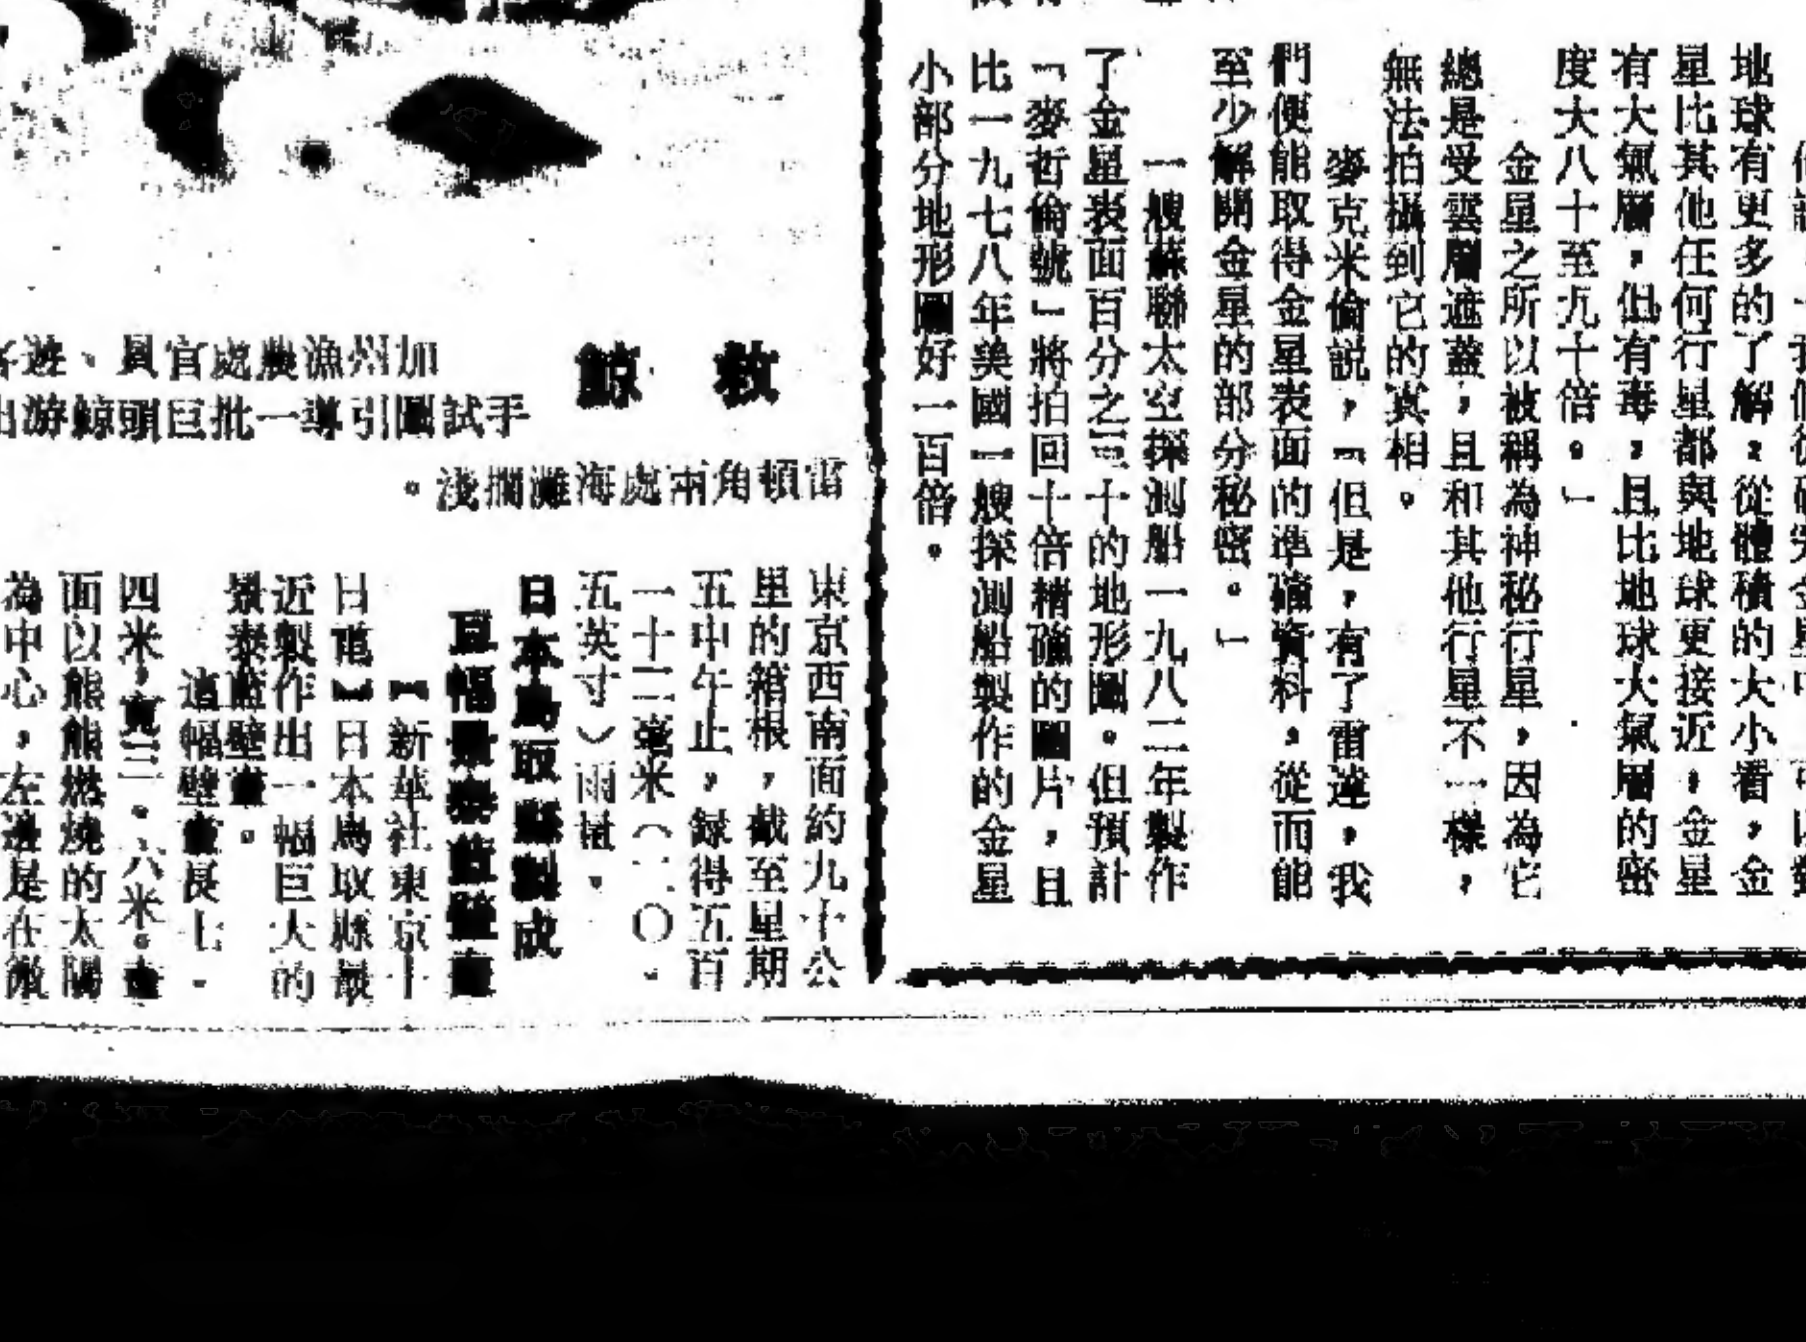 地球有更多的了解，從體積的大小看，金
星比其他任何行星都與地球更接近，金星
有大氣層，但有毒，且比地球大氣層的密
度大八十至九十倍。」
金星之所以被稱為神秘行星，因為它
總是受雲層遮蓋，且和其他行星不一樣，
無法拍攝到它的真相。
麥克米倫說，「但是，有了雷達，我
們便能取得金星表面的準確資料，從而能
至少解開金星的部分秘密。」
一艘蘇聯太空探測船一九八二年製作
了金星表面百分之三十的地形圖。但預計
「麥哲倫號」將拍回十倍精確的圖片，且
比一九七八年美國一艘探測船製作的金星
小部分地形圖好一百倍。
救鯨
加州漁農處官員、遊
手試圖引導一批巨頭鯨游出
雷頓角兩處海灘擱淺。
東京西南面約九十公
里的箱根，截至星期
五中午止，錄得五百
一十二毫米（二〇．
五英寸）雨量。
日本鳥取縣製成
巨幅景泰藍壁畫
【新華社東京十
日電】日本鳥取縣最
近製作出一幅巨大的
景泰藍壁畫。
這幅壁畫長七．
四米，寬三．六米。畫
面以熊熊燃燒的太陽
為中心，左邊是在微